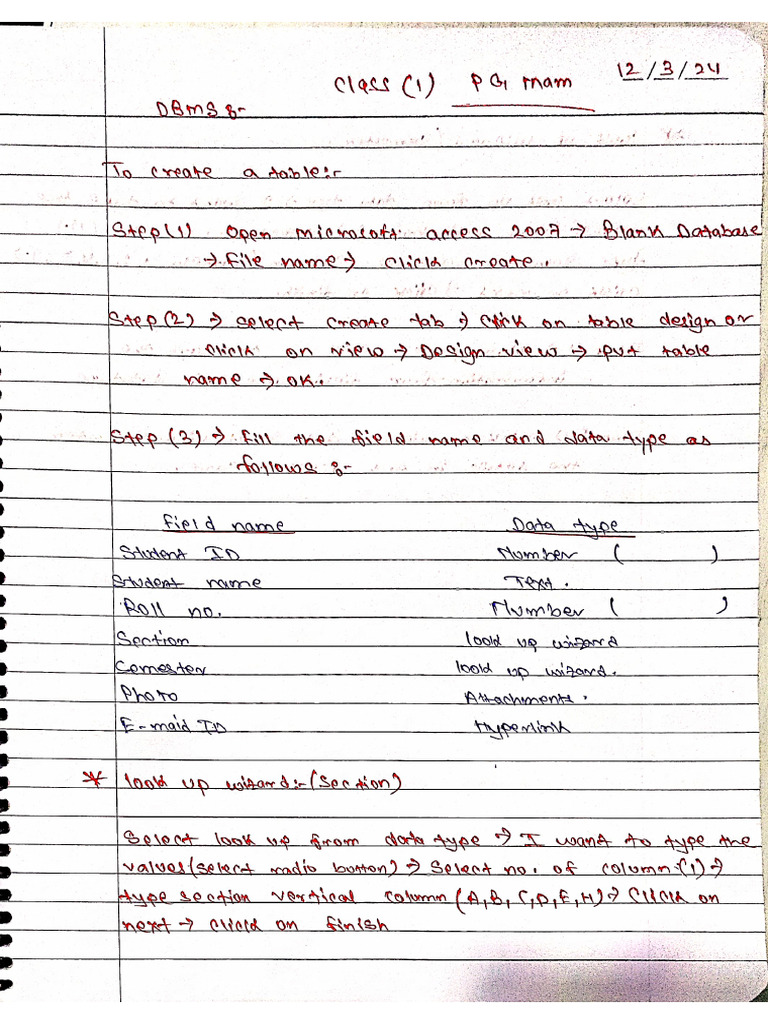 Class (1) PG mam 12/3/24
DBMS :-
To create a table:-
Step(1) Open microsoft access 2007 → Blank Database
→ file name → click create.
Step(2) → select create tab → click on table design or
click on view → Design view → put table
name → ok.
Step (3) → fill the field name and data type as
follows :-
field name Data type
Student ID Number ( )
Student name Text.
Roll no. Number ( )
Section look up wizard
Cemester look up wizard.
Photo Attachments.
E-maid ID Hyperlink
* look up wizard:-(Section)
Select look up from data type → I want to type the
values(select radio button) → Select no. of column:(1) →
type section vertical column (A,B,C,D,E,H) → Click on
next → click on finish